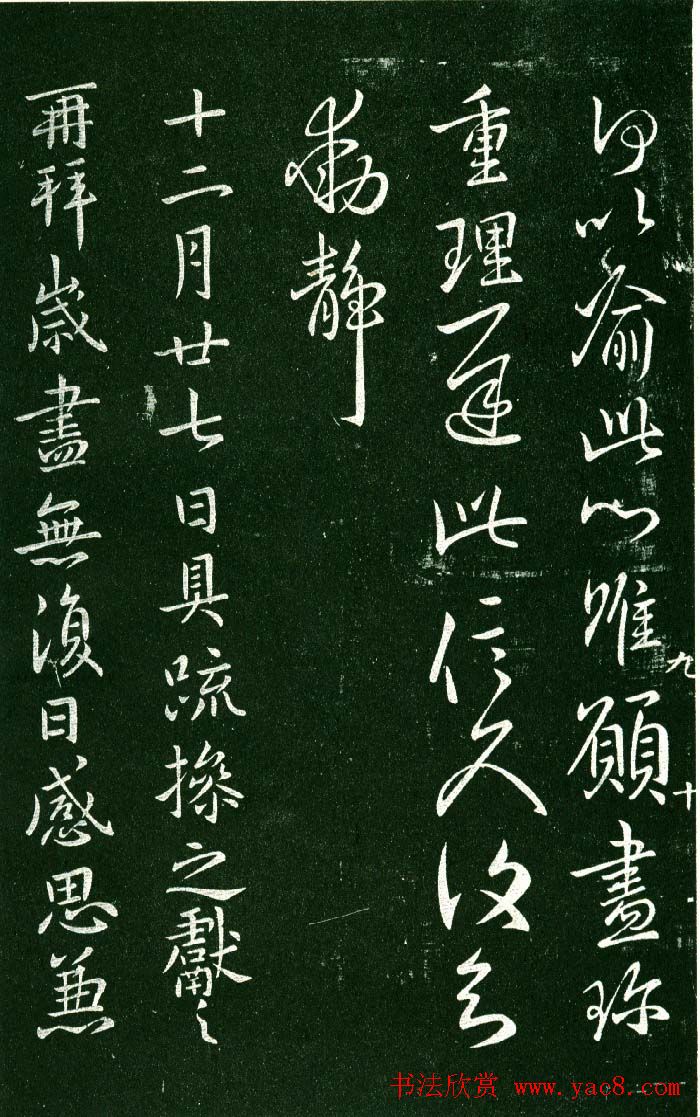 何以喻此心唯願盡珍
重理遲此信久復知
動靜
十二月廿七日具疏操之獻之
再拜歲盡無復日感思兼
九
十
书法欣赏 www.yac8.com